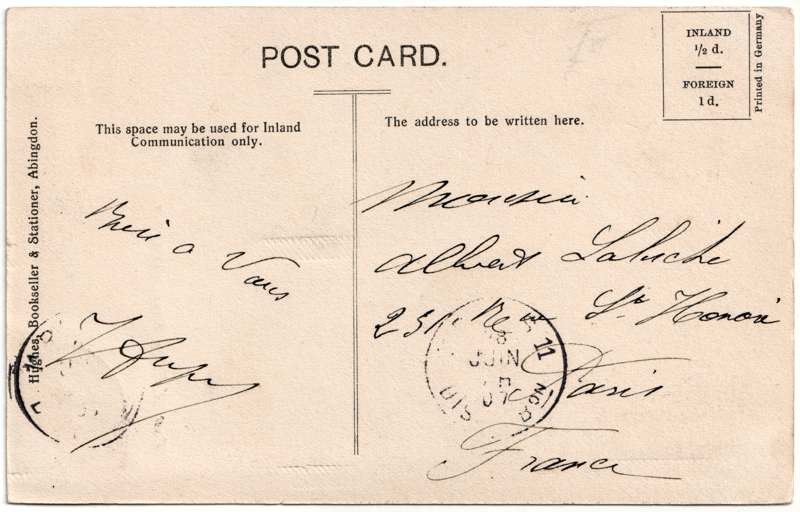 POST CARD.
INLAND
½ d.
FOREIGN
1 d.
Printed in Germany
This space may be used for Inland
Communication only.
The address to be written here.
Hughes, Bookseller & Stationer, Abingdon.
a Vous
Monsieur
Albert
251 Rue St Honoré
Paris
France
11
JUIN
07
DISTRIBON